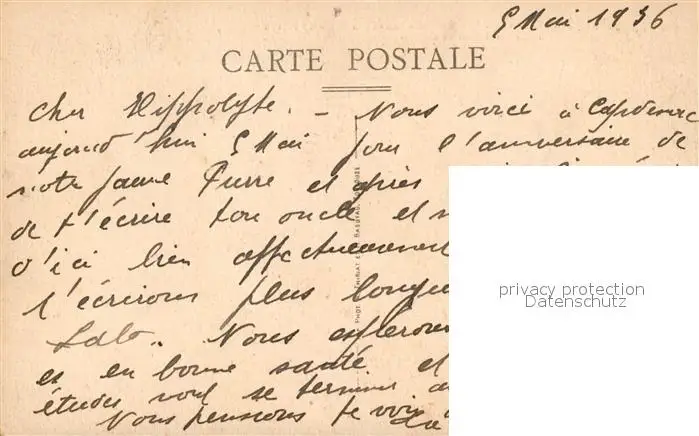 9 Mai 1936
CARTE POSTALE
Cher Hippolyte. – Nous voici à Capdenac
aujourd'hui 9 Mai jour l'anniversaire de
notre jeune Pierre et après
de t'écrire ton oncle et
d'ici bien affectueusement
t'écrirons plus longue
Nous espérons
es en bonne santé et
études vont se terminer
Nous pensons te voir
PHOT.
privacy protection
Datenschutz